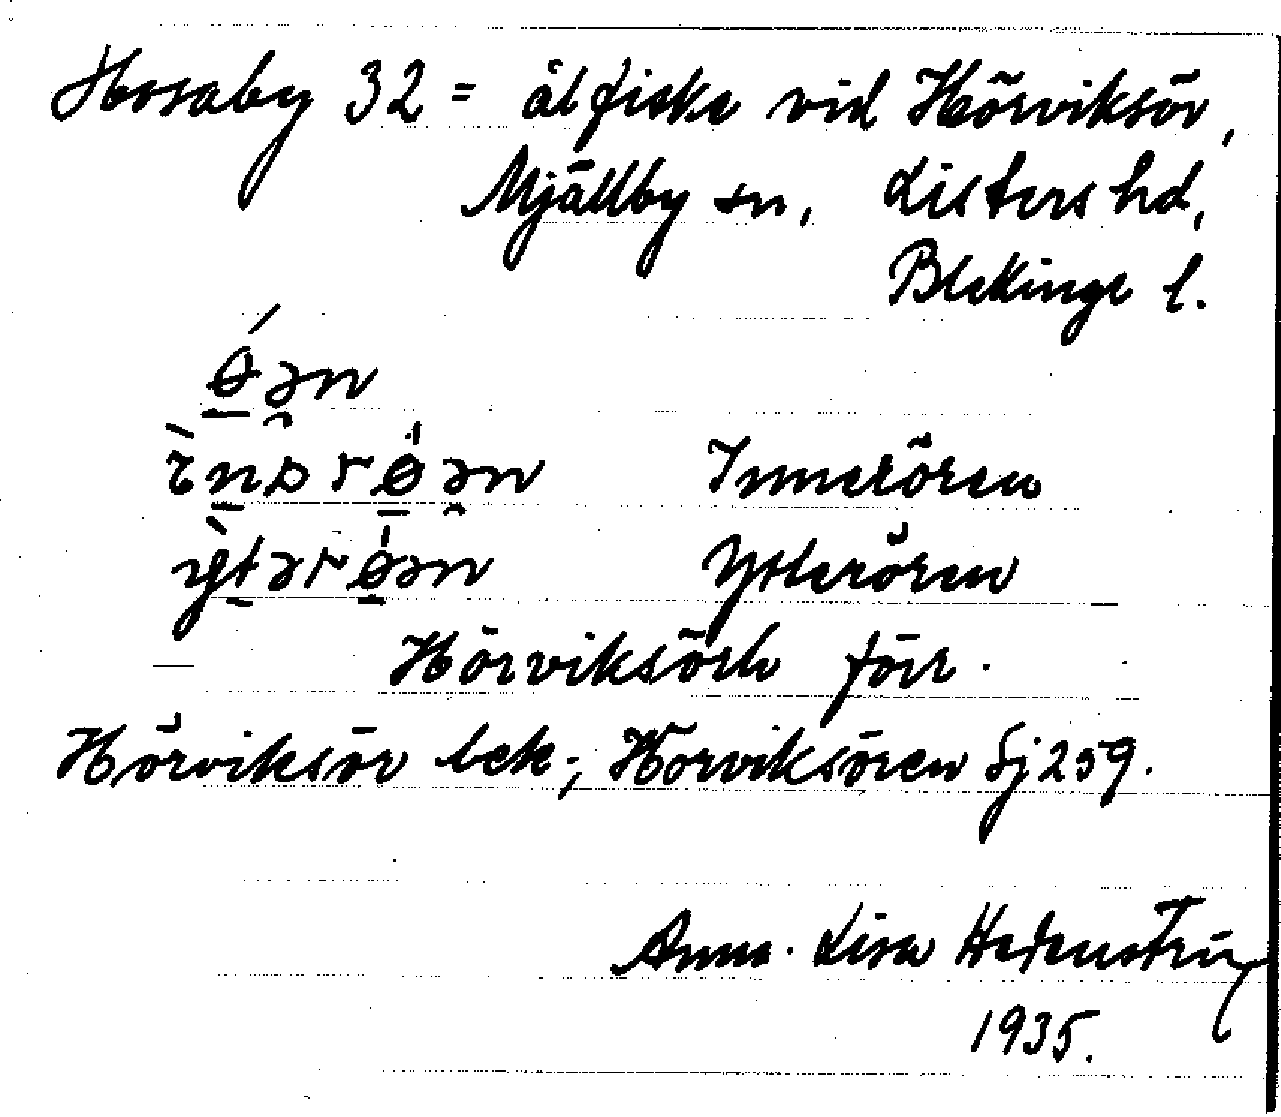 Hosaby 32 = ålfiske vid Hörviksör,
Mjällby sn, Listers hd,
Blekinge l.
ǿən
ìnərǿən Innerören
ỳtərǿən Ytterören
Hörviksörh förr.
Hörviksör bek.; Hörviksören Sj 259.
Anna-Lisa
1935.